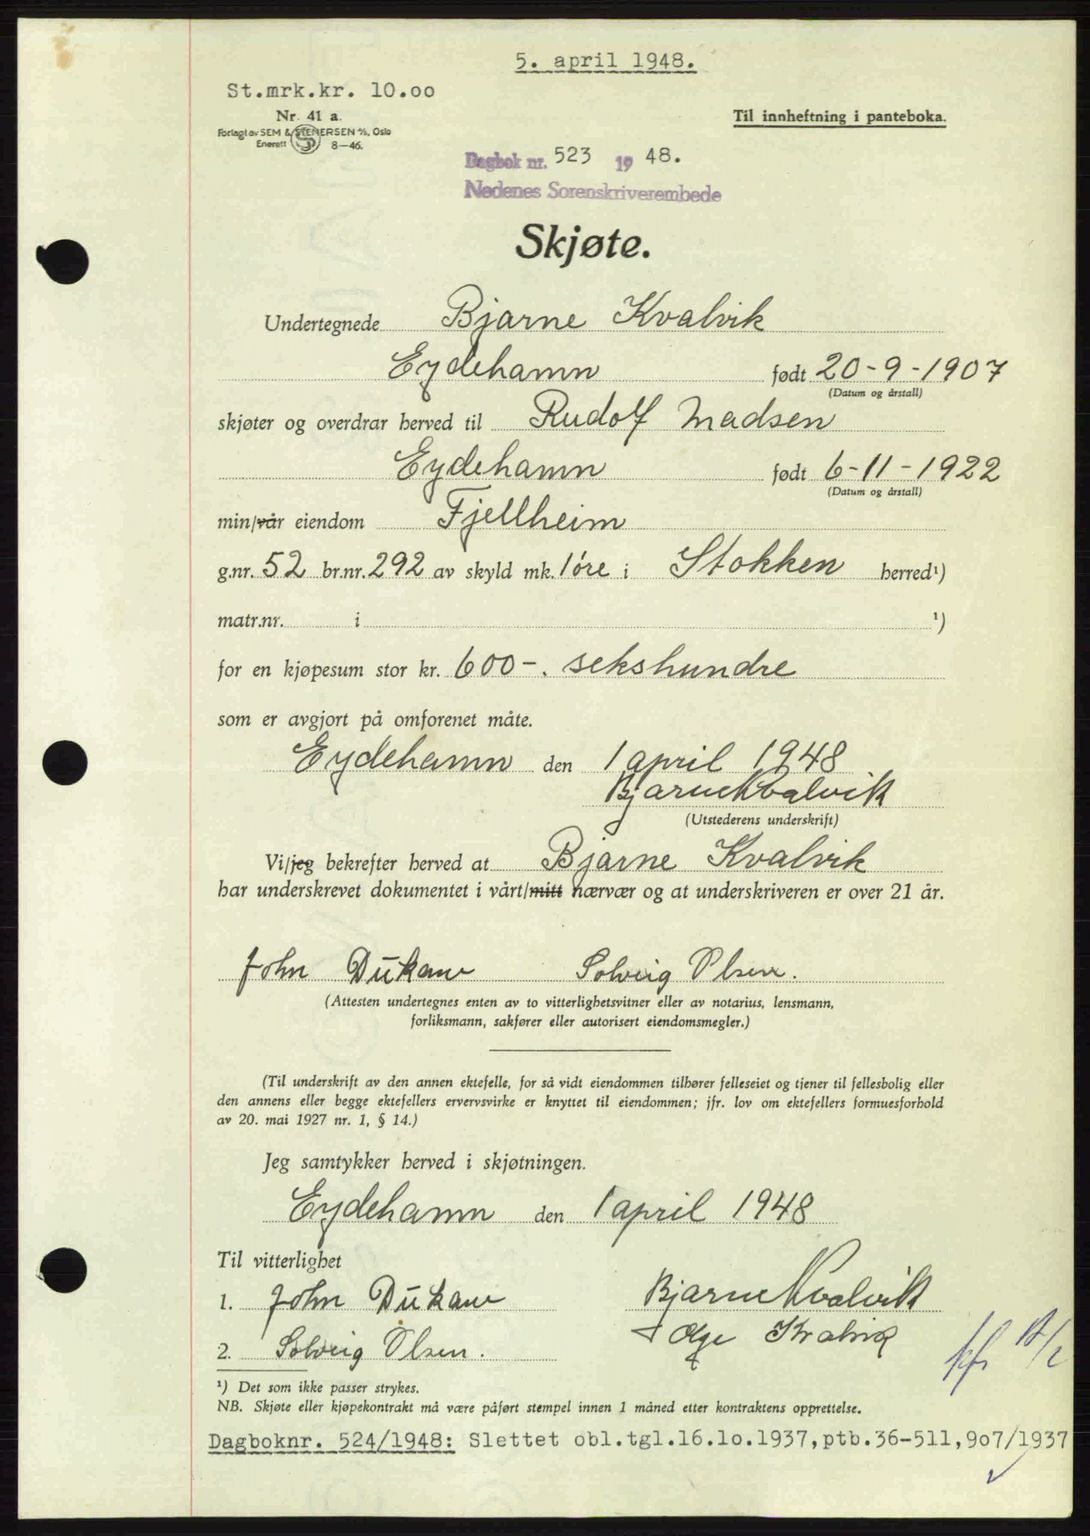 5. april 1948.
St.mrk.kr. 10.00
Nr. 41 a.
Forlagt av SEM & STENERSEN A/S, Oslo
Enerett 8—46.
Til innheftning i panteboka.
Dagbok nr. 523 1948.
Nedenes Sorenskriverembede
Skjøte.
Undertegnede Bjarne Kvalvik
Eydehamn født 20-9-1907
(Datum og årstall)
skjøter og overdrar herved til Rudolf Madsen
Eydehamn født 6-11-1922
(Datum og årstall)
min/vår eiendom Fjellheim
g.nr. 52 br.nr. 292 av skyld mk. 1 øre i Stokken herred¹)
matr.nr. i ¹)
for en kjøpesum stor kr. 600-. sekshundre
som er avgjort på omforenet måte.
Eydehamn den 1 april 1948
Bjarne Kvalvik
(Utstederens underskrift)
Vi/jeg bekrefter herved at Bjarne Kvalvik
har underskrevet dokumentet i vårt/mitt nærvær og at underskriveren er over 21 år.
John Dukan Solveig Olsen.
(Attesten undertegnes enten av to vitterlighetsvitner eller av notarius, lensmann,
forliksmann, sakfører eller autorisert eiendomsmegler.)
(Til underskrift av den annen ektefelle, for så vidt eiendommen tilhører felleseiet og tjener til fellesbolig eller
den annens eller begge ektefellers ervervsvirke er knyttet til eiendommen; jfr. lov om ektefellers formuesforhold
av 20. mai 1927 nr. 1, § 14.)
Jeg samtykker herved i skjøtningen.
Eydehamn den 1 april 1948
Til vitterlighet
1. John Dukan Bjarne Kvalvik
Kvalvik
2. Solveig Olsen.
¹) Det som ikke passer strykes.
NB. Skjøte eller kjøpekontrakt må være påført stempel innen 1 måned etter kontraktens opprettelse.
Dagboknr. 524/1948: Slettet obl.tgl.16.10.1937,ptb.36-511,907/1937